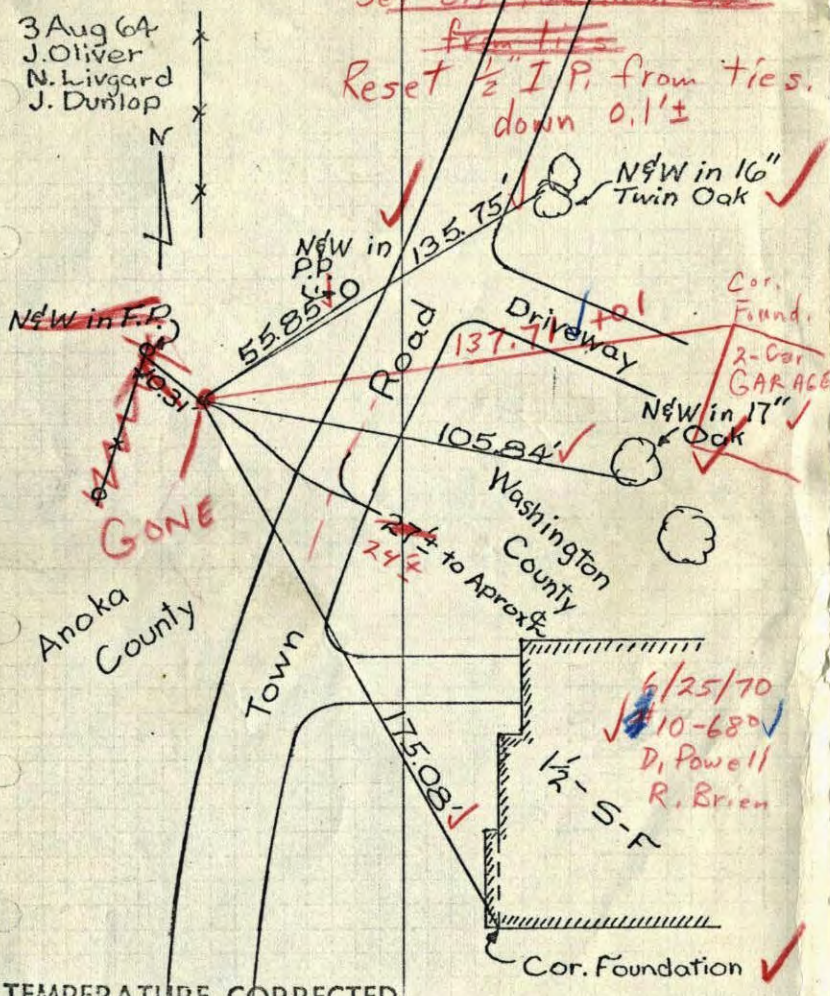 3 Aug 64
J. Oliver
N. Livgard
J. Dunlop
N
from ties
Reset ½" I P. from ties.
down 0.1'±
N&W in 16"
Twin Oak
135.75'
N&W in
P.P.
55.85'
N&W in F.P.
10.31
GONE
Road
Driveway
137.71 +01
Cor.
Found.
2-Car
GARAGE
N&W in 17"
Oak
105.84'
Washington
County
27'±
24'± to Aprox ℄
Anoka
County
Town
175.08'
6/25/70
#10-68°
D. Powell
R. Brien
1½-S-F
Cor. Foundation
TEMPERATURE CORRECTED